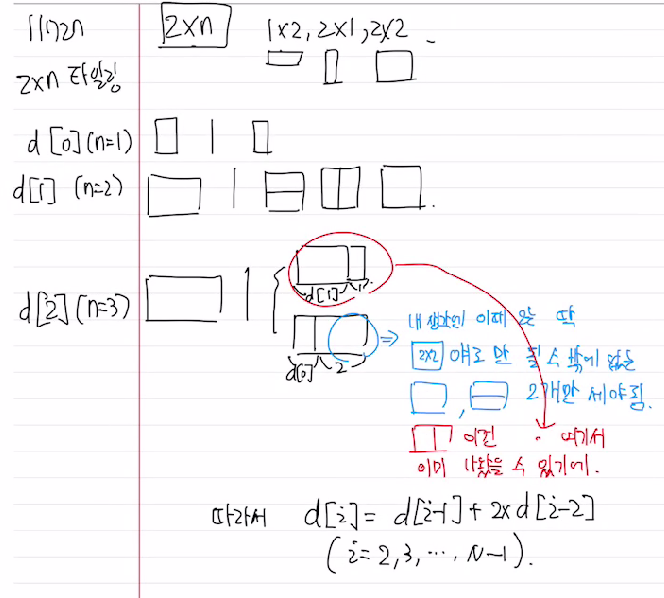 11727
2xn 타일링
2xn
1x2, 2x1, 2x2
d[0](n=1)
d[1] (n=2)
d[2](n=3)
d[1] 1
d[0] 2
내 생각엔 이때
2x2 얘로만 될 수 밖에 없는
, 2개만 세야됨.
이건 여기서
이미 나왔을 수 있기에.
따라서 d[i] = d[i-1] + 2x d[i-2]
(i=2,3, ..., N-1).